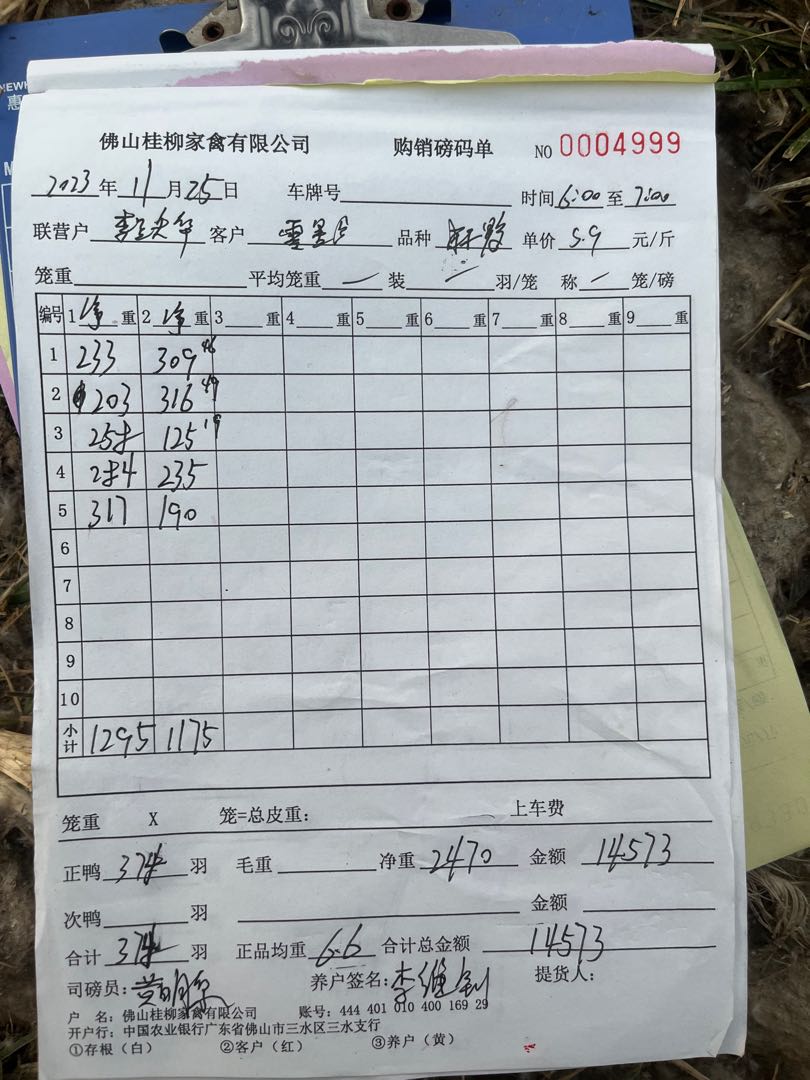 佛山桂柳家禽有限公司 购销磅码单 NO 0004999
2023年11月25日 车牌号 时间6:00至7:00
联营户 客户 品种 单价 5.9 元/斤
笼重 平均笼重 一 装 一 羽/笼 称 一 笼/磅
编号 1 净 重 2 净 重 3 重 4 重 5 重 6 重 7 重 8 重 9 重
1 233 309
2 203 316 49
3 125 19
4 235
5 317 190
6
7
8
9
10
小计 1295 1175
笼重 X 笼=总皮重: 上车费
正鸭 羽 毛重 净重 2470 金额 14573
次鸭 羽 金额
合计 羽 正品均重 6.6 合计总金额 14573
司磅员: 养户签名: 提货人:
户 名: 佛山桂柳家禽有限公司 账号: 444 401 010 400 169 29
开户行: 中国农业银行广东省佛山市三水区三水支行
①存根(白) ②客户(红) ③养户(黄)